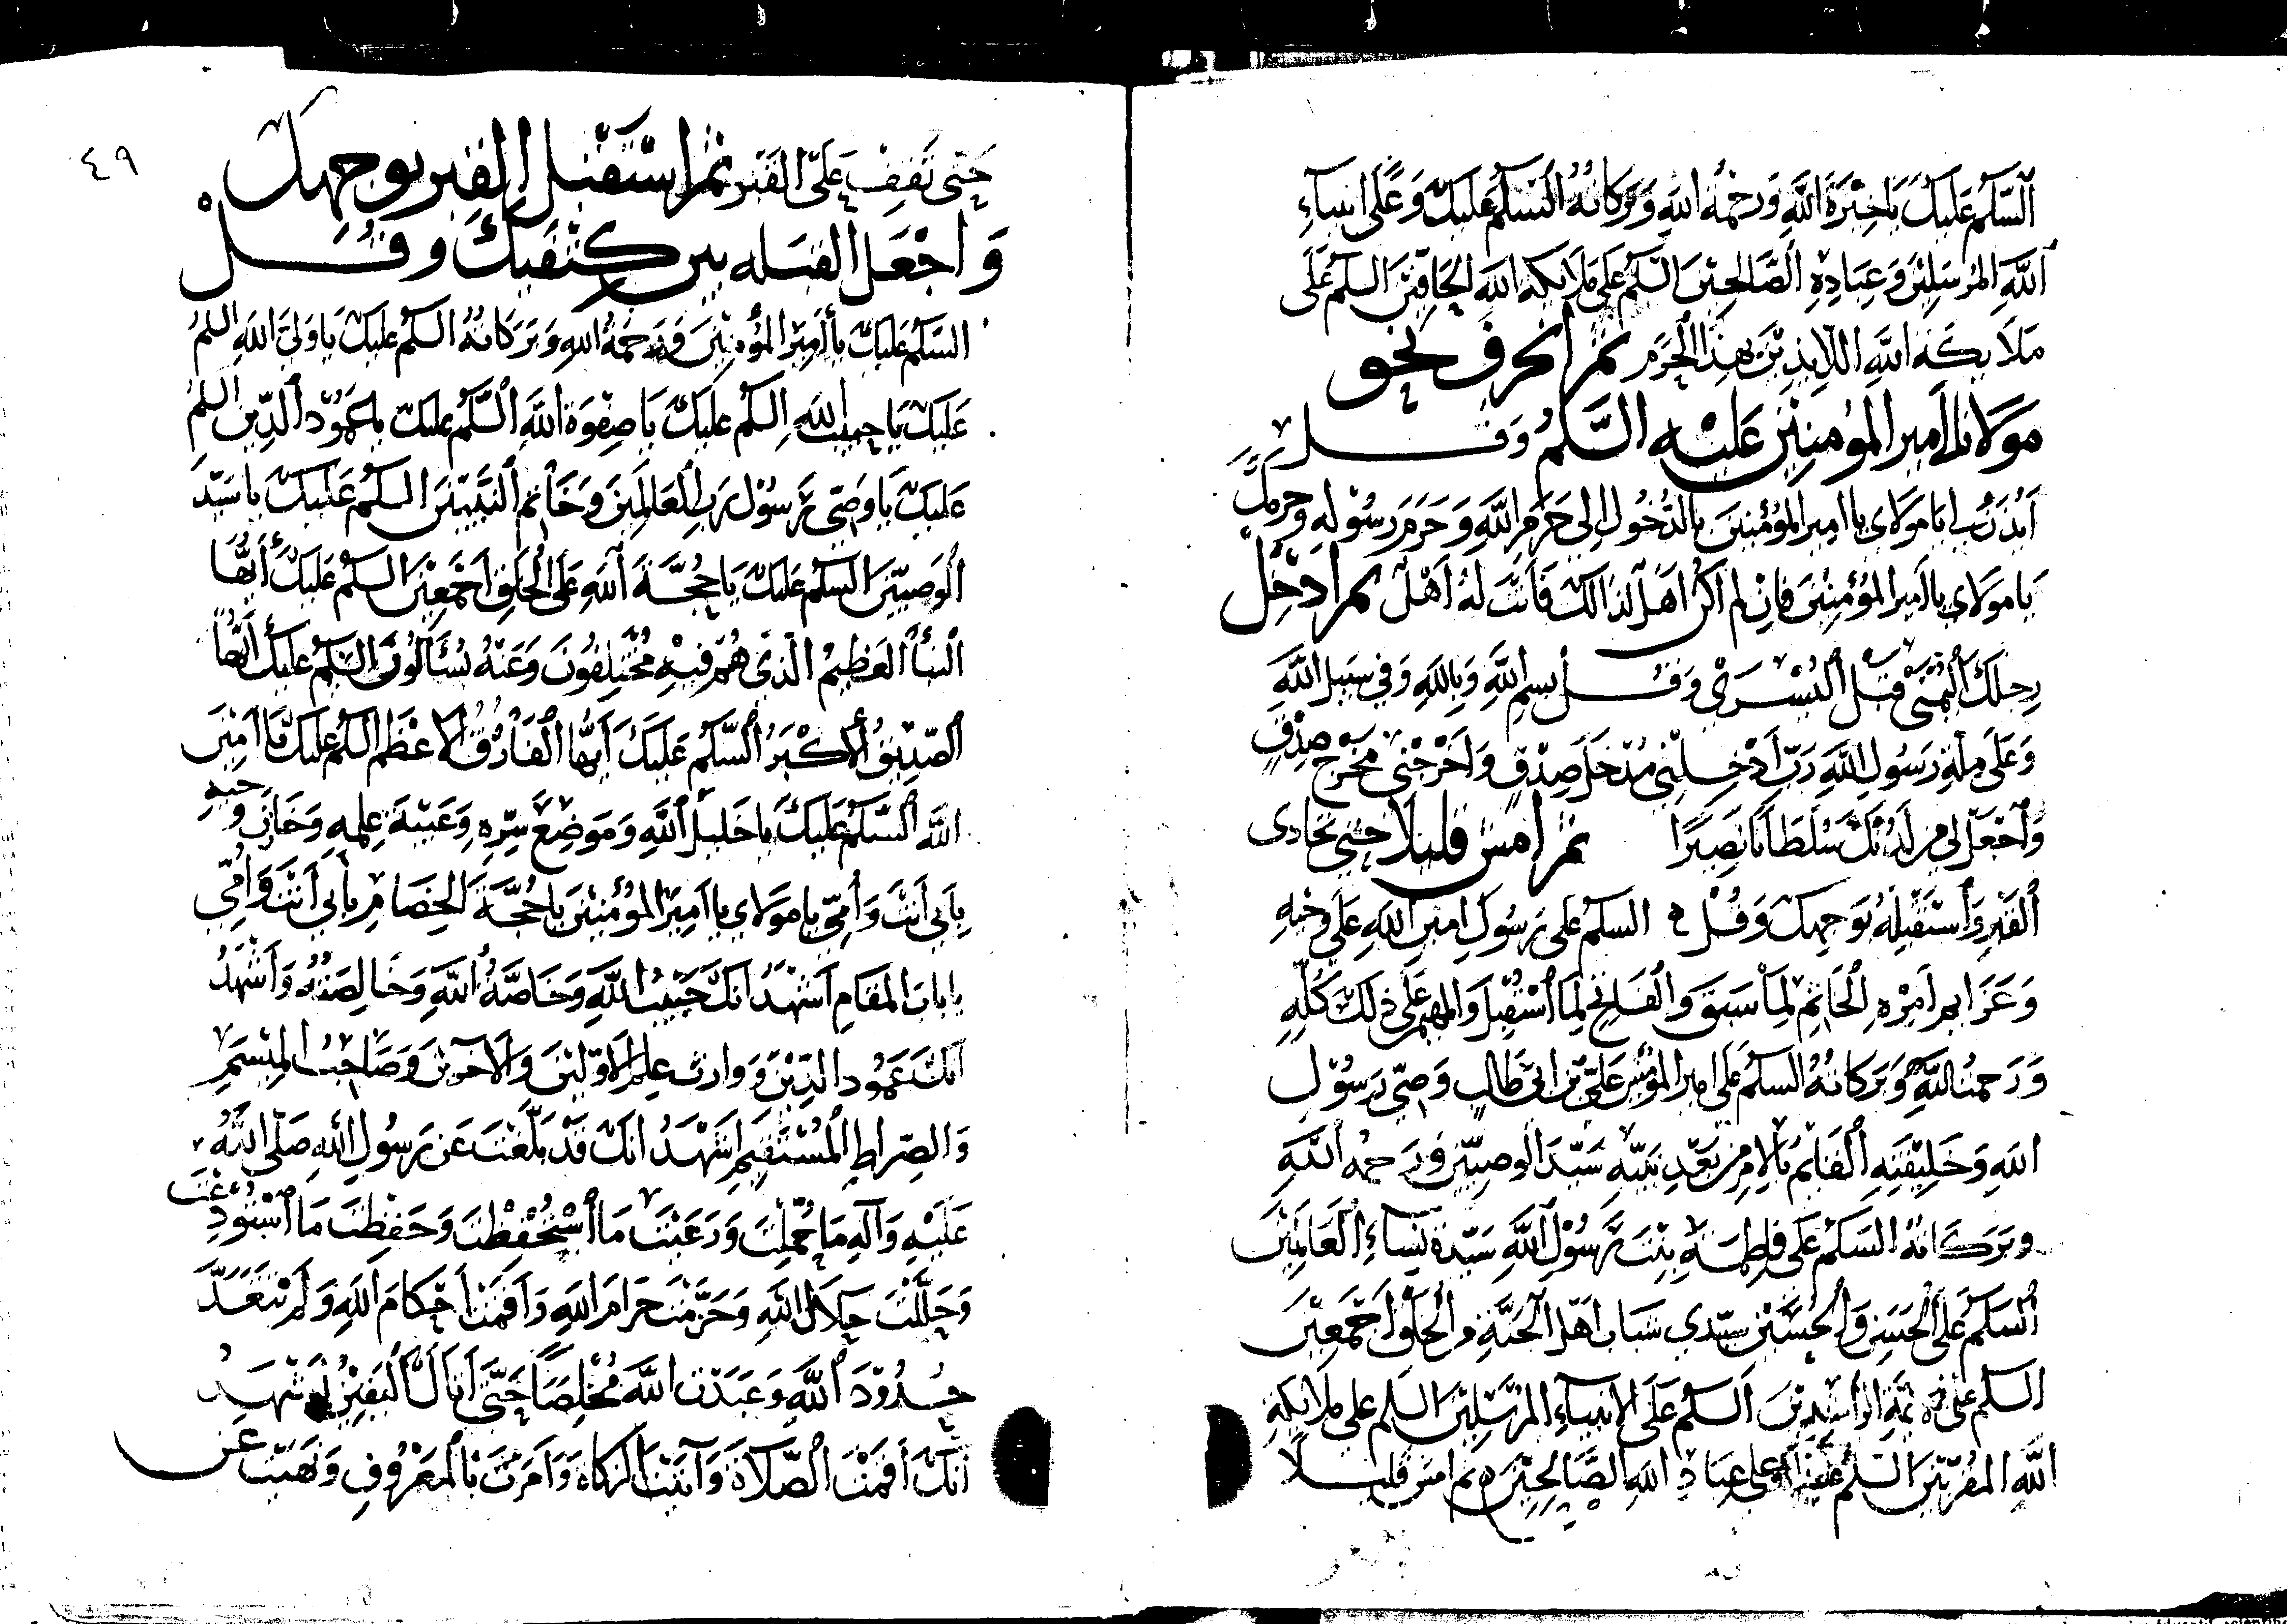 اَلسَّلَمُ عَلَيْكَ يَا خِيَرَةَ اللهِ وَرَحْمَةُ اللهِ وَبَرَكَاتُهُ السَّلَمُ عَلَيْكَ وَعَلَى انبياءِ
اللهِ المُرْسَلِيْنَ وَعِبَادِهِ الصَّالِحِيْنَ السَّلَمُ عَلَى مَلَائكة اللهِ الحَافِّيْنَ السلم عَلَى
مَلَائِكَة اللهِ اللائِذِيْنَ بِهَذَا الْحَرَم ثم انحرف نحو
مَوْلَانا اَمير المؤمِنِيْن عَلَيْهِ السَّلَمُ وَقل
اَيْذَن لي يَا مَوْلَاى يا امير المؤُمنينَ بالدُّخُول الى حَرَمِ اللهِ وَحَرَمِ رسُوْلِهِ وحرمكَ
يَا مَوْلَاى يا اَمير المؤُمِنِيْنَ فَاِن لم اكن اهلا لذالك فَانتَ لهُ اَهْل ثم ادخل
رجلكَ اليُمْنَى قبل اليُسْرى وَقُل بِسمِ اللهِ وَبِاللهِ وَفي سَبيل اللهِ
وَعَلَى مِلَّةِ رَسُولِ اللهِ رَبّ اَدْخِلْنِى مُدْخَلَ صِدْقٍ وَاَخْرِجْنِى مُخْرَجَ صِدْقٍ
وَاجْعَلْ لِي مِن لَدُنْكَ سُلْطَانًا نَصِيْرًا ثم امش قليلا حتى تحاذى
القَبرِ وَاسْتَقْبِلهُ بوَجهِكَ وَقُلْ السلمُ عَلى رَسُولِ امين اللهِ عَلَى وَحْيِهِ
وَعَزَايم اَمْرِهِ الْخَاتِمِ لِمَا سَبَقَ وَالْفَاتِحِ لِمَا اسْتُقْبِلَ وَالمهيمن عَلَى ذلِكَ كُلِّهِ
وَرَحمةُ اللهِ وَبَرَكَاتُهُ السَّلَمُ عَلَى امير المؤمنين عَلِيّ بن ابي طَالب وَصِيّ رَسُوْلِ
اللهِ وَخَلِيْفَتِهِ القَائم بالامر من بَعْدِ نَبِيّه سَيّد الوصيّين وَرَحمة اللهِ
وبَرَكَاتُهُ السَلَمُ عَلَى فاطِمَة بِنْتِ رَّسُوْلِ اللهِ سَيِّدة نِسَاءِ الْعَالَمِيْنَ
اَلسَّلَمُ عَلَى الحَسَنِ وَالحُسَيْنِ سيّدي شبَاب اَهْلِ الجَنَّةِ من الْخَلْقِ اَجْمَعِيْنَ
السلم على الائمَّةِ الرَّاشِدِيْنَ السَّلَمُ عَلَى الانبيَاءِ المُرْسَلِيْنَ السَّلم على مَلَائكةِ
اللهِ المُقَرَّبِيْنَ السَّلم علينا وعلى عِبَادِ اللهِ الصَّالِحِيْنَ ثم امش قليلا
٤٩
حَتَّى تَقِفَ عَلَى القَبْر ثمّ اسْتَقْبِل القبر بوجهك
وَاجْعَل القبلة بين كتفيكَ وقُل
السَّلَمُ عَلَيْكَ يا اَمِيْر المُؤْمِنِيْنَ وَرَحمَةُ اللهِ وَبَرَكَاتُهُ السَّلَمُ عَلَيْكَ يَا وَلِيَّ اللهِ السلمُ
عَلَيْكَ يَا حَبيبَ اللهِ السَّلَمُ عَلَيْكَ يَا صِفْوَةَ اللهِ السَّلَمُ عَلَيْكَ يا عَمُوْدَ الدِّيْنِ السلمُ
عَلَيْكَ يَا وَصِيّ رَسُوْل رَبِّ الْعَالَمِيْنَ وَخَاتِم النَّبِيِّيْنَ السَلمُ عَلَيْكَ يَا سَيّدَ
الوَصِيِّيْنَ السَّلَمُ عَلَيْكَ يَا حُجَّةَ اللهِ عَلَى الْخَلْقِ اَجْمَعِيْنَ السَّلَمُ عَلَيْكَ اَيُّهَا
النَّبَأُ الْعَظِيْمُ الَّذِى هُمْ فِيْهِ مُخْتَلِفُونَ وَعَنْهُ يُسْئَالُوْنَ السَّلَمُ عَلَيْكَ اَيُّهَا
الصِّدِّيقُ الْاَكْبَرُ السَّلَمُ عَلَيْكَ اَيُّهَا الْفَارُوْقُ الْاَعْظَم السَّلَمُ عَلَيْكَ يَا اَمِيْنَ
اللهِ السَّلَمُ عَلَيْكَ يَا خَلِيْلَ اللهِ وَمَوضِعَ سِرِّهِ وَعَيْبَةَ عِلْمِهِ وَخَازِنَ وَحْيِهِ
بِاَبِي اَنْتَ وَاُمِّي يا مَوْلَاى يا اَمِيْر المؤُمنِيْنَ يَا حُجَّةَ الخِصَامِ بِأَبِي اَنْتَ وَاُمِّي
يا بابَ المقَامِ اَشْهَدُ اَنَّكَ حَبِيْبُ اللهِ وَخَاصَّةُ اللهِ وَخَالِصَتُهُ وَاَشْهَدُ
اَنَّكَ عَمُود الدِّيْنِ وَوارث عِلْمِ الْاَوَّلِيْنَ وَالاخِرِيْنَ وَصَاحِبُ المِيْسَمِ
وَالصِّرَاطِ الْمُسْتَقِيْمِ اَشْهَدُ اَنَّكَ قَدْ بَلَّغْتَ عَن رَسُوْلِ اللهِ صَلَّى اللهُ
عَلَيْهِ وَآلِهِ مَا حُمِّلْتَ وَرَعَيْتَ مَا اسْتُحْفِظْتَ وَحَفِظْتَ مَا اسْتُودِعْتَ
وَحَلَّلْتَ حَلَالَ اللهِ وَحَرَّمْتَ حَرَامَ اللهِ وَاَقَمْتَ اَحْكَامَ اللهِ وَلَمْ تَتَعَدَّ
حُدُوْدَ اللهِ وَعَبَدْتَ اللهَ مُخْلِصًا حَتَّى اَتَاكَ الْيَقِيْنُ اَشْهَدُ
اَنَّكَ اَقَمْتَ الصَّلَاةَ وَآتَيْتَ الزَكَاةَ وَاَمَرْتَ بِالْمَعْرُوفِ وَنَهَيْتَ عَن